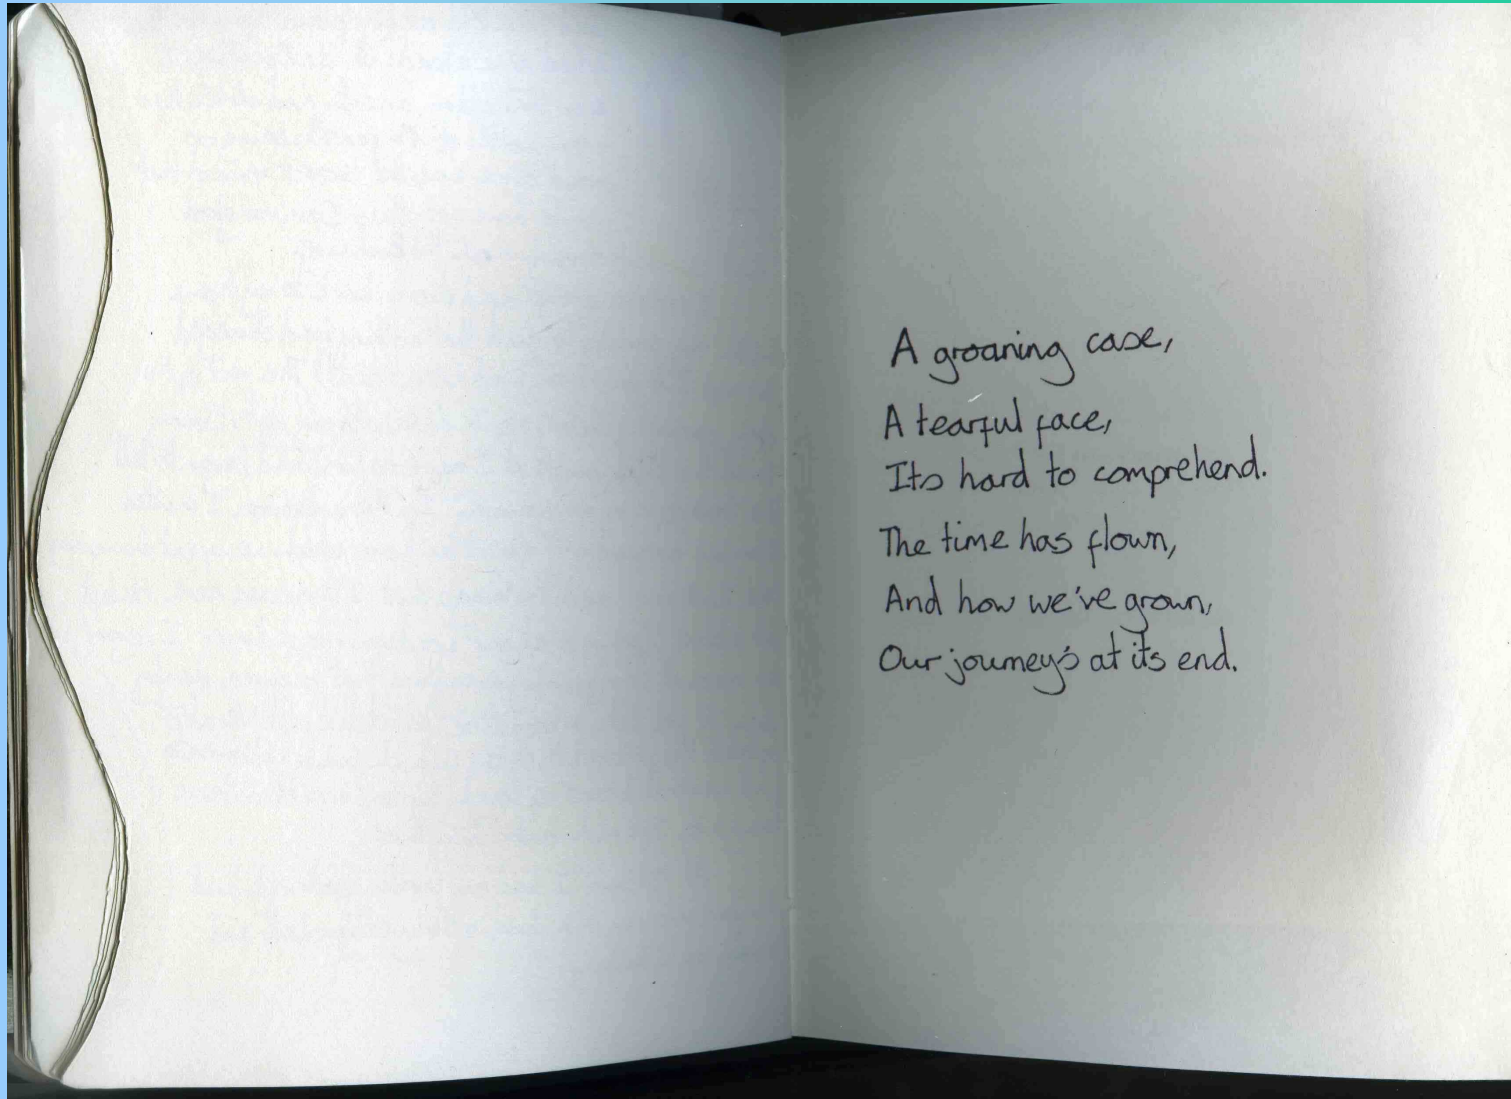 A groaning case,
A tearful face,
Its hard to comprehend.
The time has flown,
And how we've grown,
Our journey's at its end.